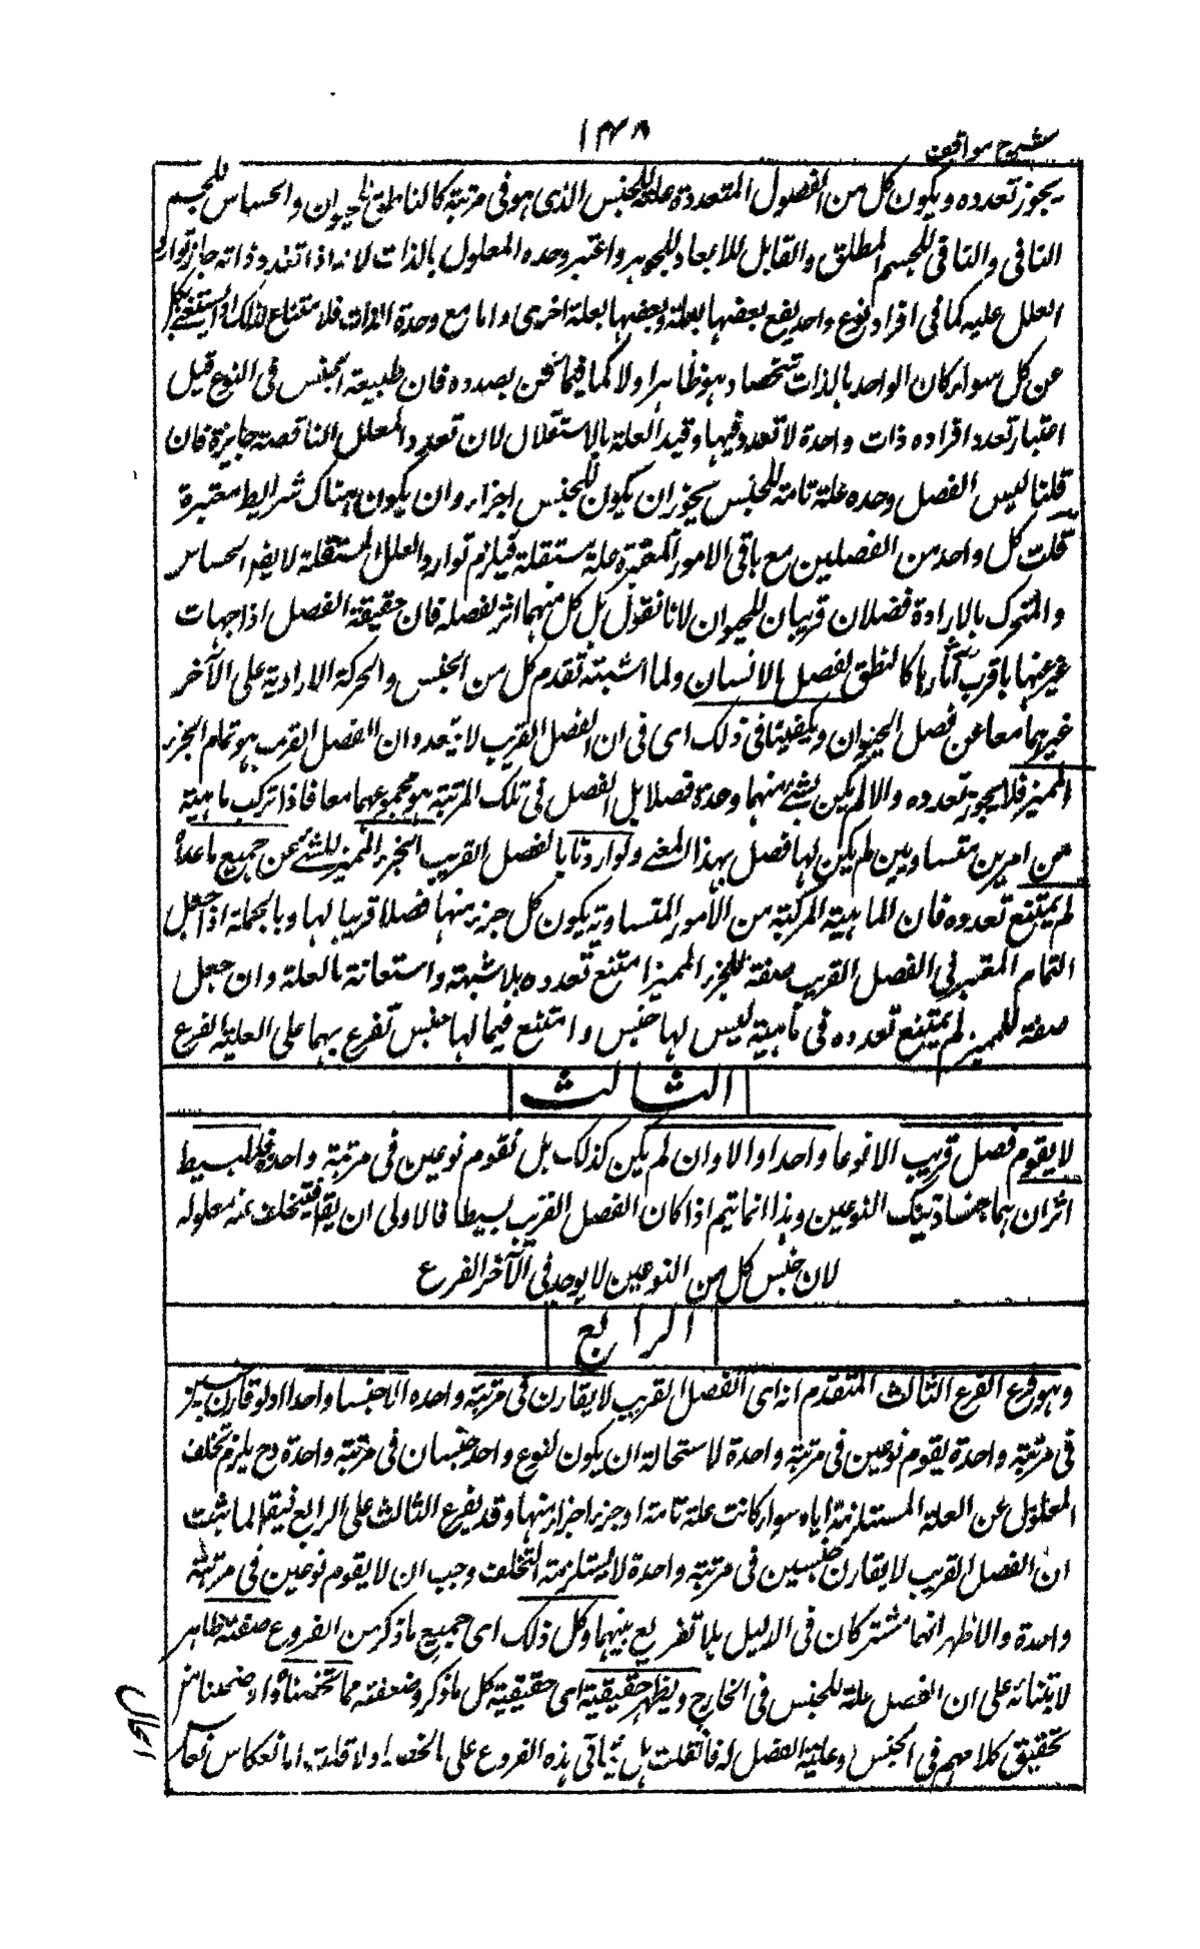 شرح مواقف
۱۴۸
يجوز تعدده ويكون كل من الفصول المتعددة علة للجنس الذى هو فى مرتبة كالناطق للحيوان والحساس للجسم
النافى والنافى للجسم المطلق والقابل للابعاد للجوهر واعتبر وحده المعلول بالذات لانه اذا تعدد ذاته جاز توارد
العلل عليه كما فى افراد نوع واحد يقع بعضها بعلة وبعضها بعلة اخرى واما مع وحدة الذات فلا متناع لذلك اذ يستغنى بكل
عن كل سواء كان الواحد بالذات شخصا وهو ظاهر اولا كما فيما نحن بصدده فان طبيعة الجنس فى النوع قبل
اعتبار تعدد افراده ذات واحدة لا تعدد فيها وقيد العلة بالاستقلال لان تعدد العلل الناقصة جايزة فان
قلنا ليس الفصل وحده علة تامة للجنس يجوز ان يكون للجنس اجزاء وان يكون هناك شرايط معتبرة
قلت كل واحد من الفصلين مع باقى الامور المعتبرة علة مستقلة فيلزم توارد العلل المستقلة لايقم الحساس
والمتحرك بالارادة فصلان قريبان للحيوان لانا نقول بل كل منهما اثر لفصله فان حقيقة الفصل اذا جهلت
عبر عنها باقرب آثارها كالنطق لفصل الانسان ولما اشتبه تقدم كل من الحس والحركة الارادية على الآخر
عبر بهما معا عن فصل الحيوان ويكفينا فى ذلك اى فى ان الفصل القريب لا يتعدد ان الفصل القريب هو تمام الجزء
المميز فلا يجوز تعدده والا لم يكن شئ منهما وحدة فصلا بل الفصل فى تلك المرتبة هو مجموعهما معا فاذا تركب ماهية
من امرين متساويين لم يكن لها فصل بهذا المعنے ولو اردنا بالفصل القريب الجزء المميز للشئ عن جميع ما عداه
لم يمتنع تعدده فان الماهية المركبة من الامور المتساوية يكون كل جزء منها فصلا قريبا لها وبالجملة اذا جعل
التمام المعتبر فى الفصل القريب صفة للجزء المميز امتنع تعدده بلا شبهة واستعانة بالعلة وان جعل
صفة للمميز لم يمتنع تعدده فى ماهية ليس لها جنس وامتنع فيما لها جنس تفرع بهما على العلية الفرع
الثالث
لا يقوم فصل قريب الا نوعا واحدا والا وان لم يكن كذلك بل تقوم نوعين فى مرتبة واحدة فللبسيط
اثران هما جنسا ذينك النوعين وهذا انما يتم اذا كان الفصل القريب بسيطا فالاولى ان يقال فيتخلف عنه معلوله
لان جنس كل من النوعين لا يوجد فى الآخر الفرع
الرابع
وهو فرع الفرع الثالث المتقدم انه اى الفصل القريب لا يقارن فى مرتبة واحده الا جنسا واحدا اذ لو قارن جنسين
فى مرتبة واحدة يقوم نوعين فى مرتبة واحدة لاستحالة ان يكون لنوع واحد جنسان فى مرتبة واحدة وح يلزم تخلف
المعلول عن العلة المستلزمة اياه سواء كانت علة تامة او جزء اجزاء منها وقد يفرع الثالث على الرابع فيقال لما ثبت
ان الفصل القريب لا يقارن جنسين فى مرتبة واحدة لاستلزمه التخلف وجب ان لا يقوم نوعين فى مرتبة
واحدة والاظهر انهما مشتركان فى الدليل بلا تفريع بينهما وكل ذلك اى جميع ما ذكر من الفروع ضعفه ظاهر
لابتنائه على ان الفصل علة للجنس فى الخارج ويظهر حقيقية اى حقيقية كل ما ذكر وضعفه مما لخصناه او ضحنا من
تحقيق كلامهم فى الجنس وعلية الفصل له فان قلت هل يتأتى هذه الفروع على الخصه اولا قلت اما انعكاس تعا
احال